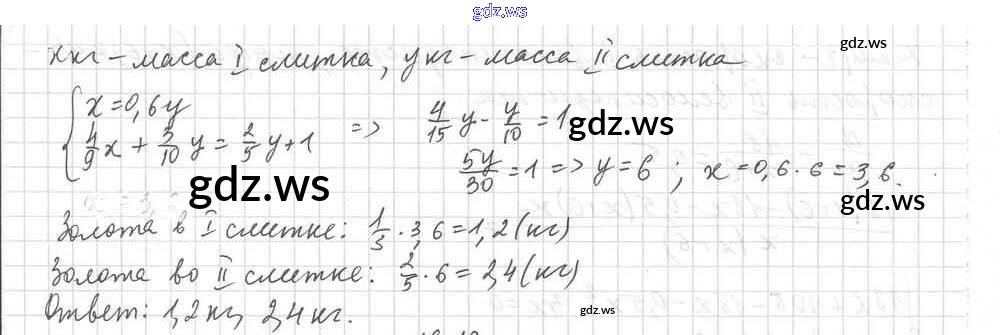 gdz.ws
x кг – масса I слитка, y кг – масса II слитка
gdz.ws
{ x = 0,6y
4/9 x + 3/10 y = 2/5 y + 1 => 4/15 y - y/10 = 1
gdz.ws
5y/30 = 1 => y = 6 ; x = 0,6 · 6 = 3,6.
gdz.ws
gdz.ws
Золота в I слитке: 1/3 · 3,6 = 1,2 (кг)
Золота во II слитке: 2/5 · 6 = 2,4 (кг)
Ответ: 1,2 кг, 2,4 кг.
gdz.ws